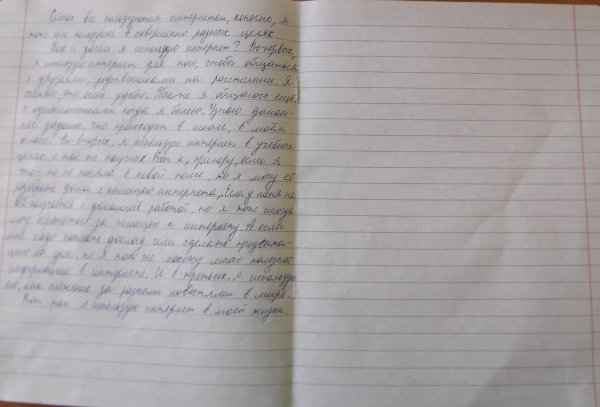 Сейчас все пользуются интернетом, конечно, я
тоже им пользуюсь в совершенно разных целях.
Как и зачем я использую интернет? Во-первых,
я использую интернет для того, чтобы общаться
с друзьями, родственниками на расстоянии. Я
считаю, это очень удобно. Так же я общаюсь ещё
с одноклассниками когда я болею. Узнаю домаш-
нее задание, что происходит в школе, в моём
классе. Во-вторых, я использую интернет в учебных
целях, я так же научных. Вот к примеру, если я
что-то не поняла в новой теме, то я могу её
разобрать дома с помощью интернета. Если у меня не
всё получается с домашней работой, то я тоже иногда
могу обратиться за помощью к интернету. А если
мне надо сделать доклад или сделать презента-
цию на урок, то я так же найду много полезной
информации в интернете. И в третьих, я использую
его, как слежение за разными новостями в мире.
Вот так я использую интернет в моей жизни.